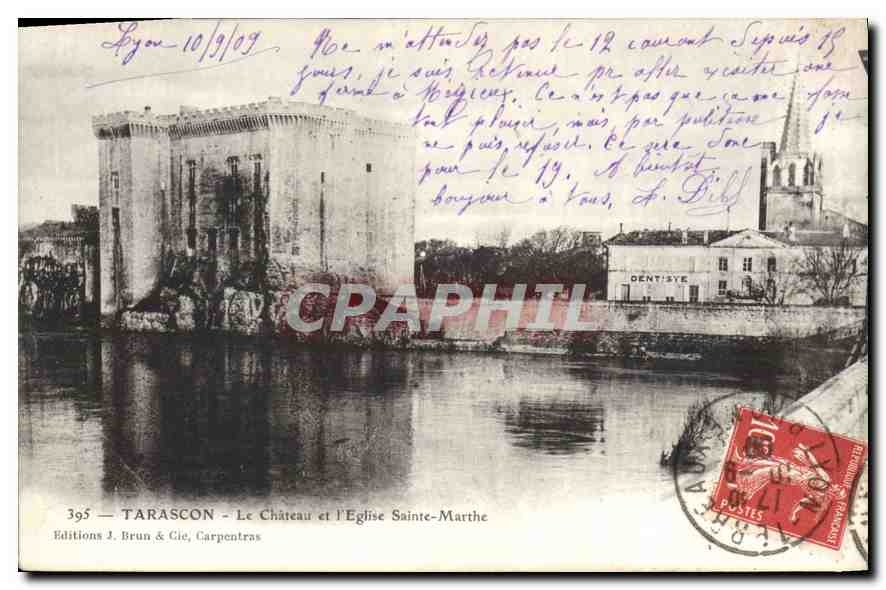 Lyon 10/9/09
Ne m'attendez pas le 12 courant depuis 15
jours, je suis retenue pr aller visiter une
ferme à Ce n'est pas que ça me fasse
tout plaisir, mais, par politesse, je
ne puis refuser. Ce sera donc
pour le 19. A bientôt
bonjour à tous,
DENTISYE
CPARAPHIL
395 — TARASCON - Le Château et l'Eglise Sainte-Marthe
Editions J. Brun & Cie, Carpentras
10
POSTES
REPUBLIQUE FRANÇAISE
LYON
TERREAUX